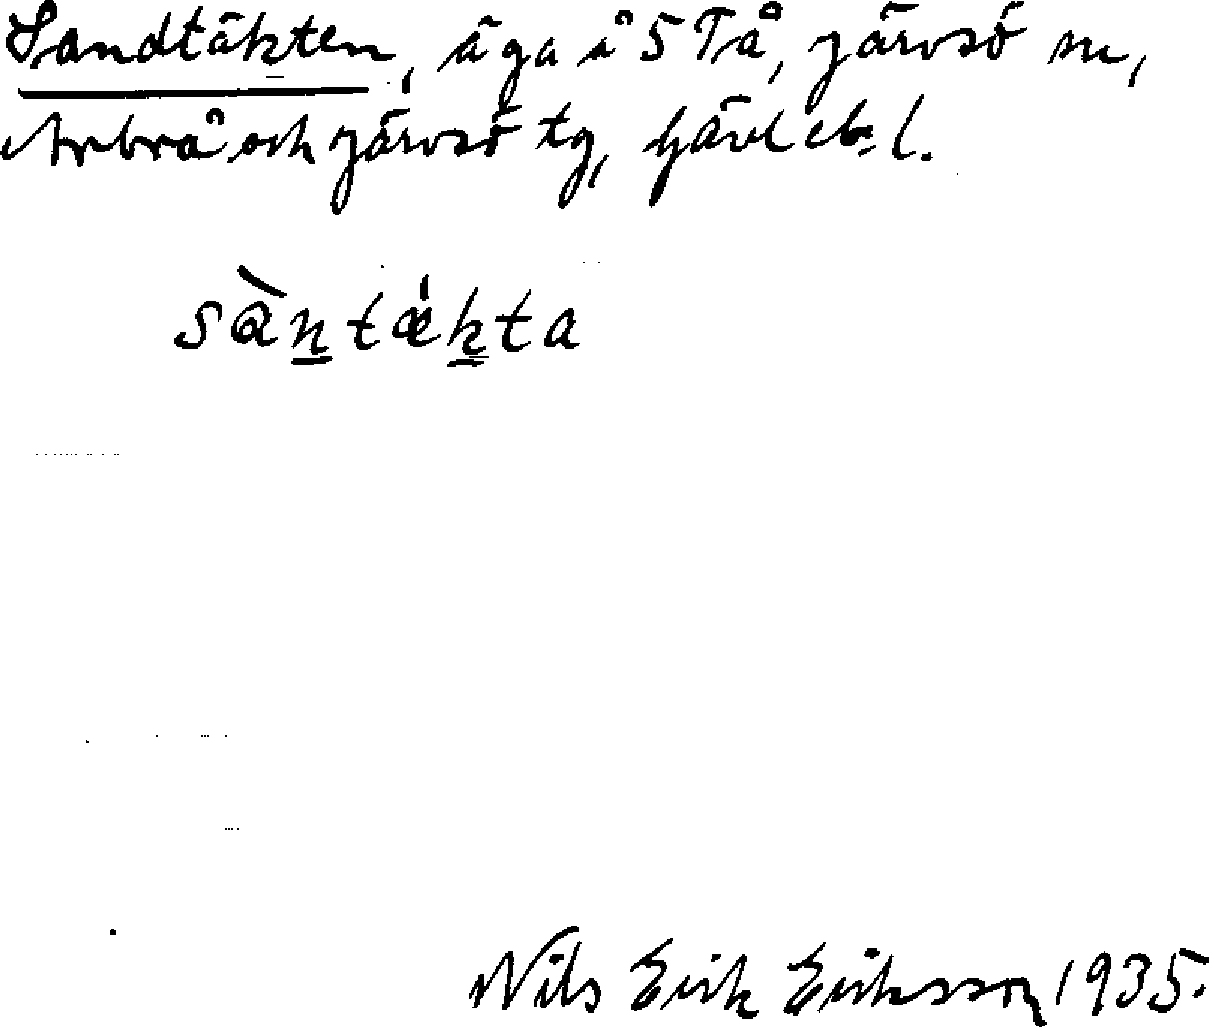 Sandtäkten, äga å 5 Tå, Järvsö sn,
Arbrå och Järvsö tg, Gävleb. l.
sàn̲tæ̍k̲ta
Nils Erik Eriksson 1935.